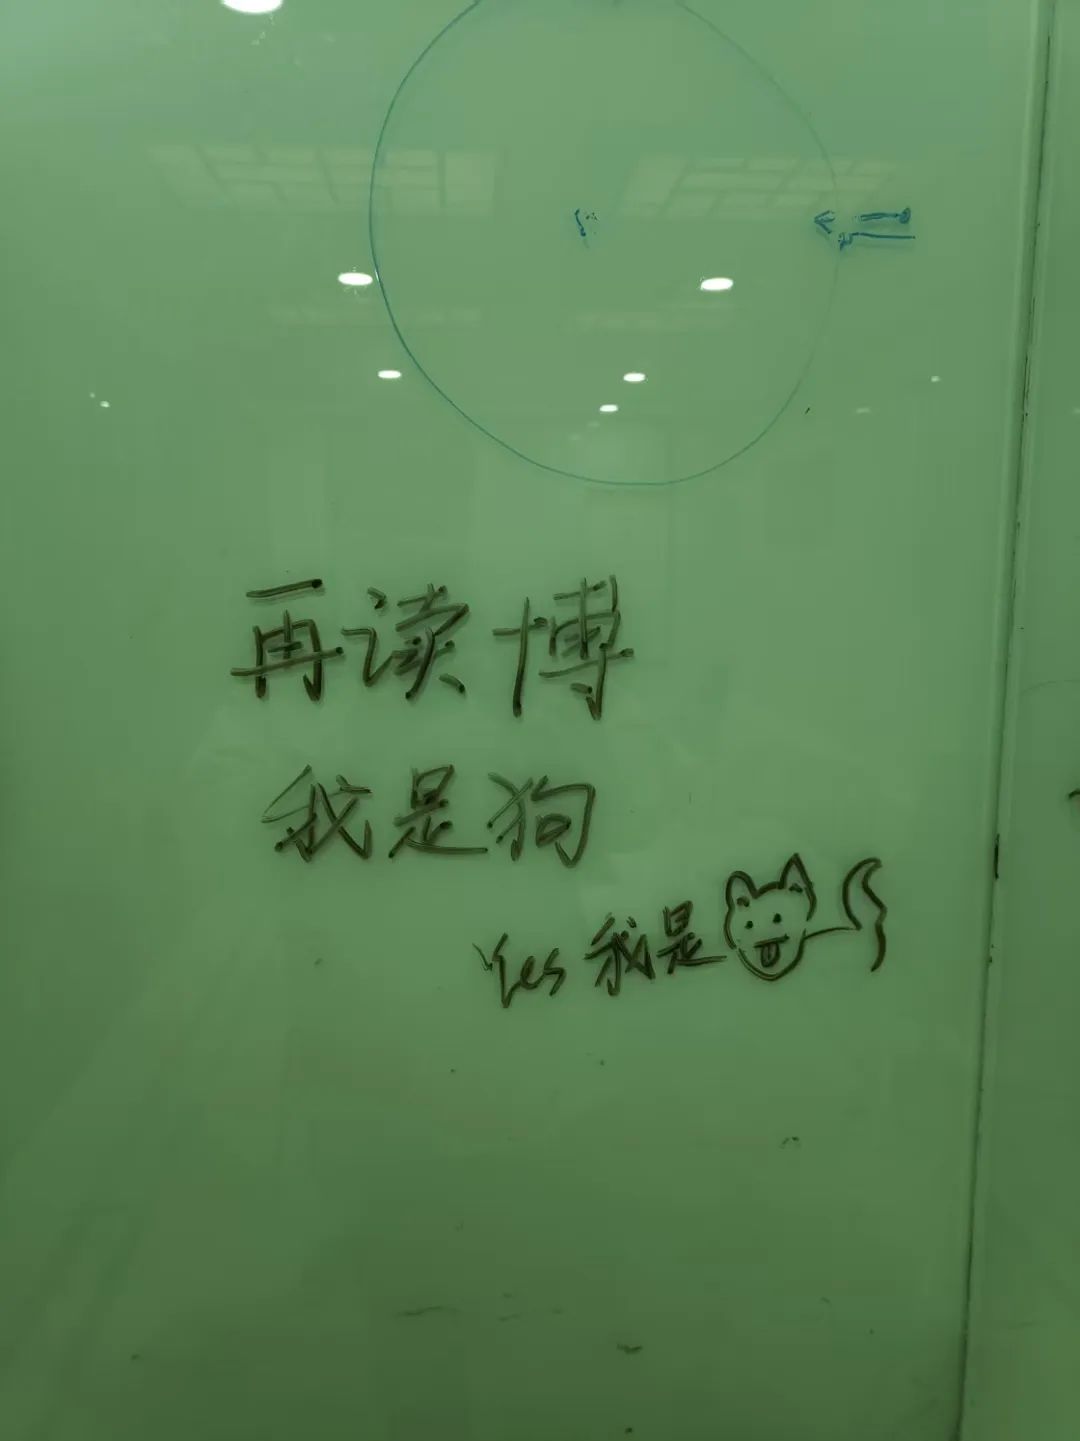 再读博
我是狗
Yes 我是